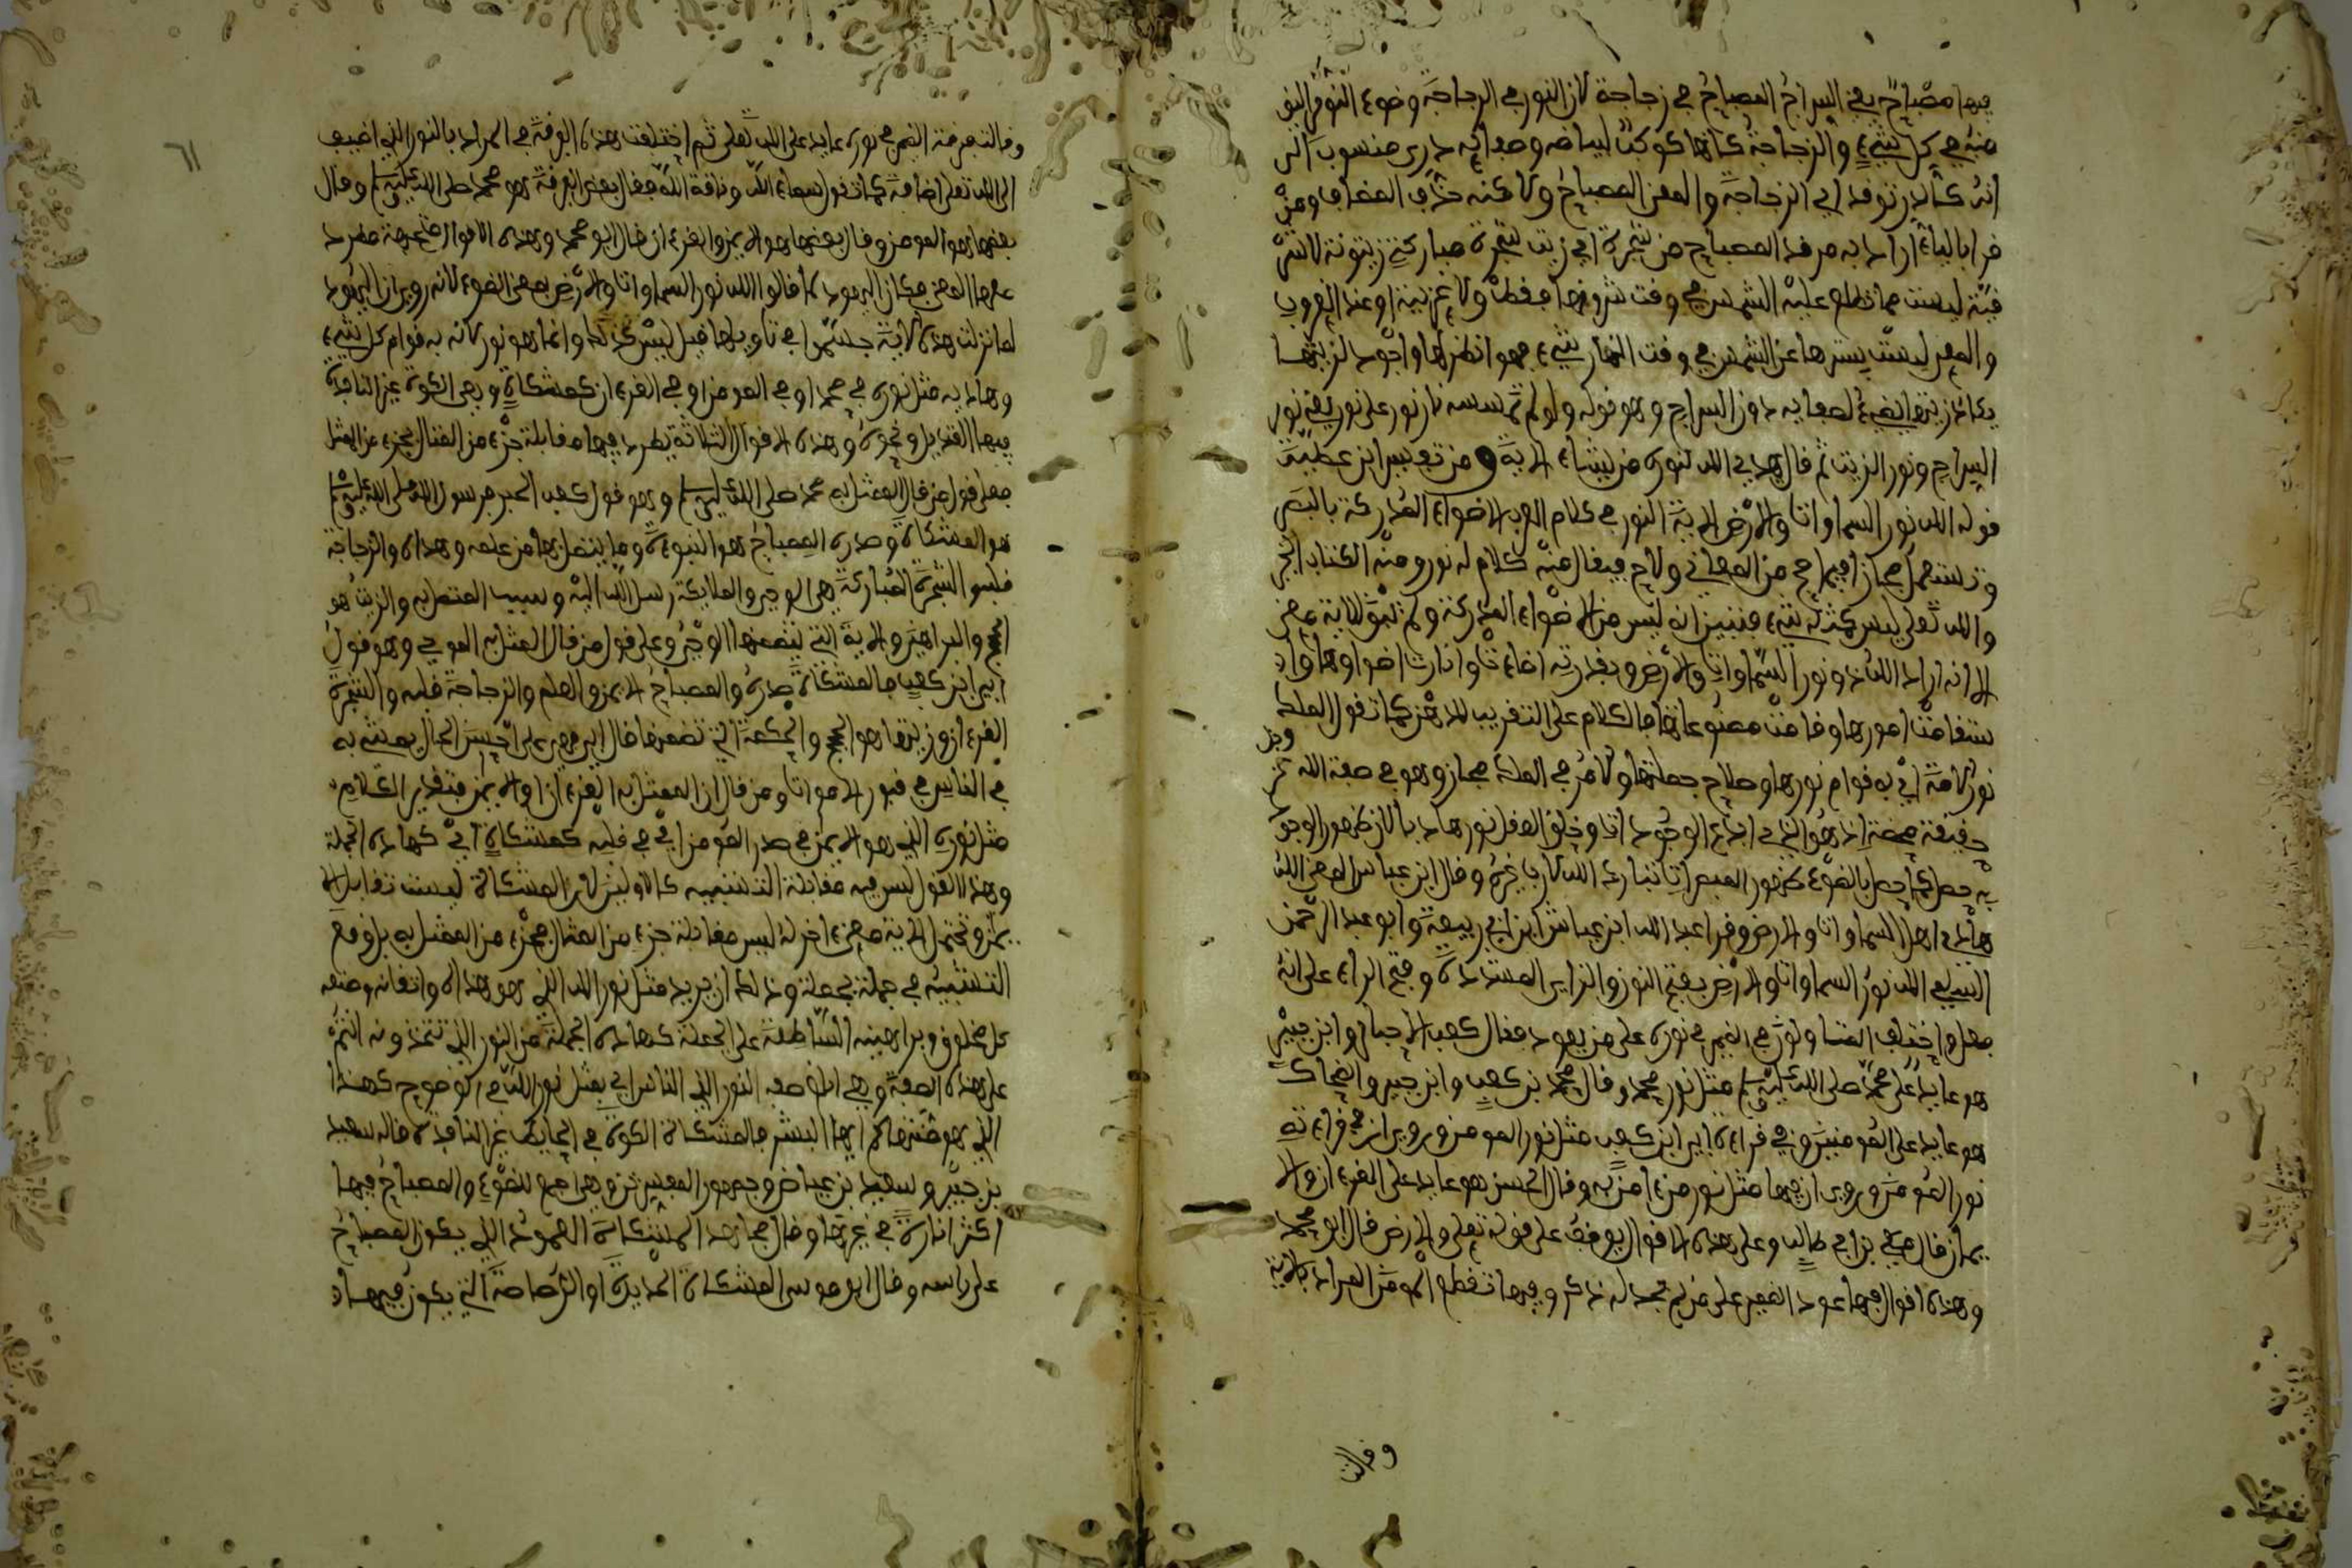 فيها مصباح يعني السراج المصباح في زجاجة لان النور في الزجاجة وضوء النور ابين
منه في كل شيء والزجاجة كانها كوكب لبياضه وصفائه دري منسوب الى
انه كالدر توقد اي الزجاجة والمعنى المصباح ولاكنه حذف المضاف ومن
قرا بالياء اراد به مرقد المصباح من شجرة اي زيت شجرة مباركة زيتونة لا شر
قية ليست مما تطلع عليه الشمس في وقت شروقها فقط ولا غربية او عند الغروب
والمعنى ليست يسترها عن الشمس في وقت النهار شيء فهو انظر لها واجود لزيتها
يكاد زيتها يضيء لصفايه دون السراج وهو قوله ولو لم تمسسه نار نور على نور يعني نور
السراج ونور الزيت ثم قال يهدي الله لنوره من يشاء الاية ومن تفسير ابن عطية
قوله الله نور السماوات والارض الاية النور في كلام العرب الاضواء المدركة بالبصر
وتستعمل مجازا فيما صح من المعاني ولاح فيقال منه كلام له نور ومنه الكتاب المنير
والله تعلى ليس كمثله شيء فتبين انه ليس من الاضواء المدركة ولم تبق للاية معنى
الا انه اراد الله ذو نور السماوات والارض وبقدرته اضاءت وانارت اضواوها واد
ستقامت امورها وقامت مصنوعاتها فالكلام على التقريب للذهن كما تقول الملك
نور الامة اي به قوام نورها وصلاح جملتها والامر في الملك مجاز وهو في صفة الله عز وجل
حقيقة محضة اذ هو الذي ابدع الموجودات وخلق العقل نورا هاديا لان ظهور الوجود
به حصل كما حصل بالضوء ظهور المبصرات تبارك الله لا رب غيره وقال ابن عباس المعنى الله
هادي اهل السماوات والارض وقرا عبد الله ابن عياش ابن ابي ربيعة وابو عبد الرحمن
السلمي الله نور السماوات والارض بفتح النون والواو المشددة وفتح الراء على انه
فعل واختلف المتاولون في الضمير في نوره على من يعود فقال كعب الاحبار وابن جبير
هو عايد على محمد صلى الله عليه وسلم مثل نور محمد وقال محمد بن كعب وابن جبير والضحاك
هو عايد على المومنين وفي قراءة ابي ابن كعب مثل نور المومنين وروي ان في قراءته
نور المومن وروي ان فيها مثل نور من امن به وقال الحسن هو عايد على القرءان والا
يمان قال مكي بن ابي طالب وعلى هذه الاقوال يوقف على قوله تعلى والارض قال ابو محمد
وهذه اقوال فيها عود الضمير على من لم يجر له ذكر وفيها تقطع المومن المراد بالاية
وقالت
٦١
وقالت فرقة الضمير في نوره عايد على الله تعلى ثم اختلفت هذه الفرقة في المراد بالنور الذي اضيف
الى الله تعلى اضافة كما تقول سماء الله وناقة الله فقال بعض الفرقة هو محمد صلى الله عليه وسلم وقال
بعضها هو المومن وقال بعضها هو الايمان والقرءان قال ابو محمد وهذه الاقوال متجهة مطرد
معها المعنى فكان اليهود لما قالوا الله نور السماوات والارض بمعنى الضوء لانه روي ان اليهود
لما نزلت هذه الاية جسموا في تاويلها قيل ليس كذلك وانما هو نور لانه به قوام كل شيء
وهذا به مثل نوره في محمد او في المومن او في القرءان كمشكاة وهي الكوة غير النافذة
فيها القنديل ونحوه وهذه الاقوال الثلاثة يطرد فيها مقابلة جزء من المثال بجزء من الممثل
فعلى قول من قال الممثل به محمد صلى الله عليه وسلم وهو قول كعب الحبر فرسول الله صلى الله عليه وسلم
هو المشكاة وصدره المصباح هو النبوءة وما يتصل بها من علمه وهداه والزجاجة
قلبه والشجرة المباركة هي الوحي والملايكة رسل الله اليه وسبب المتصل به والزيت هو
الحجج والبراهين والاية التي يتضمنها الوحي وعلى قول من قال الممثل به المومن وهو قول
ابي ابن كعب فالمشكاة صدره والمصباح الايمان والعلم والزجاجة قلبه والشجرة
القرءان وزيتها هو الحجج والحكمة التي تضمنها قال ابي فهو على احسن الحال يمشي به
في الناس في قبور الاموات ومن قال ان الممثل به القرءان او الايمان فتقدير الكلام
مثل نوره الذي هو الايمان في صدر المومن اي في قلبه كمشكاة اي كهاذه الجملة
وهذا القول ليس فيه مقابلة التشبيه كالاولين لان المشكاة ليست تقابل الا
يمان وتحتمل الاية معنى اخر انه ليس مقابلة جزء من المثال بجزء من الممثل به بل وقع
التشبيه في جملة بجملة وذلك ان يريد مثل نور الله الذي هو هداه واتقانه وصنعه
كل مخلوق وبراهينه الساطعة على الجملة كهاذه الجملة من النور الذي تتخذونه انتم
على هذه الصفة وهي ابلغ صفه النور الذي للناس اي بمثل نور الله في الوضوح كهذا
الذي هو منتهاكم ايها البشر فالمشكاة الكوة في الحايط غير النافذة قاله سعيد
بن جبير وسعيد بن عياض وجمهور المفسرين وهي اجمع للضوء والمصباح فيها
اكثر انارة في غيرها وقال مجاهد المشكاة العمود الذي يكون المصباح
على راسه وقال ابو موسى المشكاة الحديدة او الرصاصة التي يكون فيها